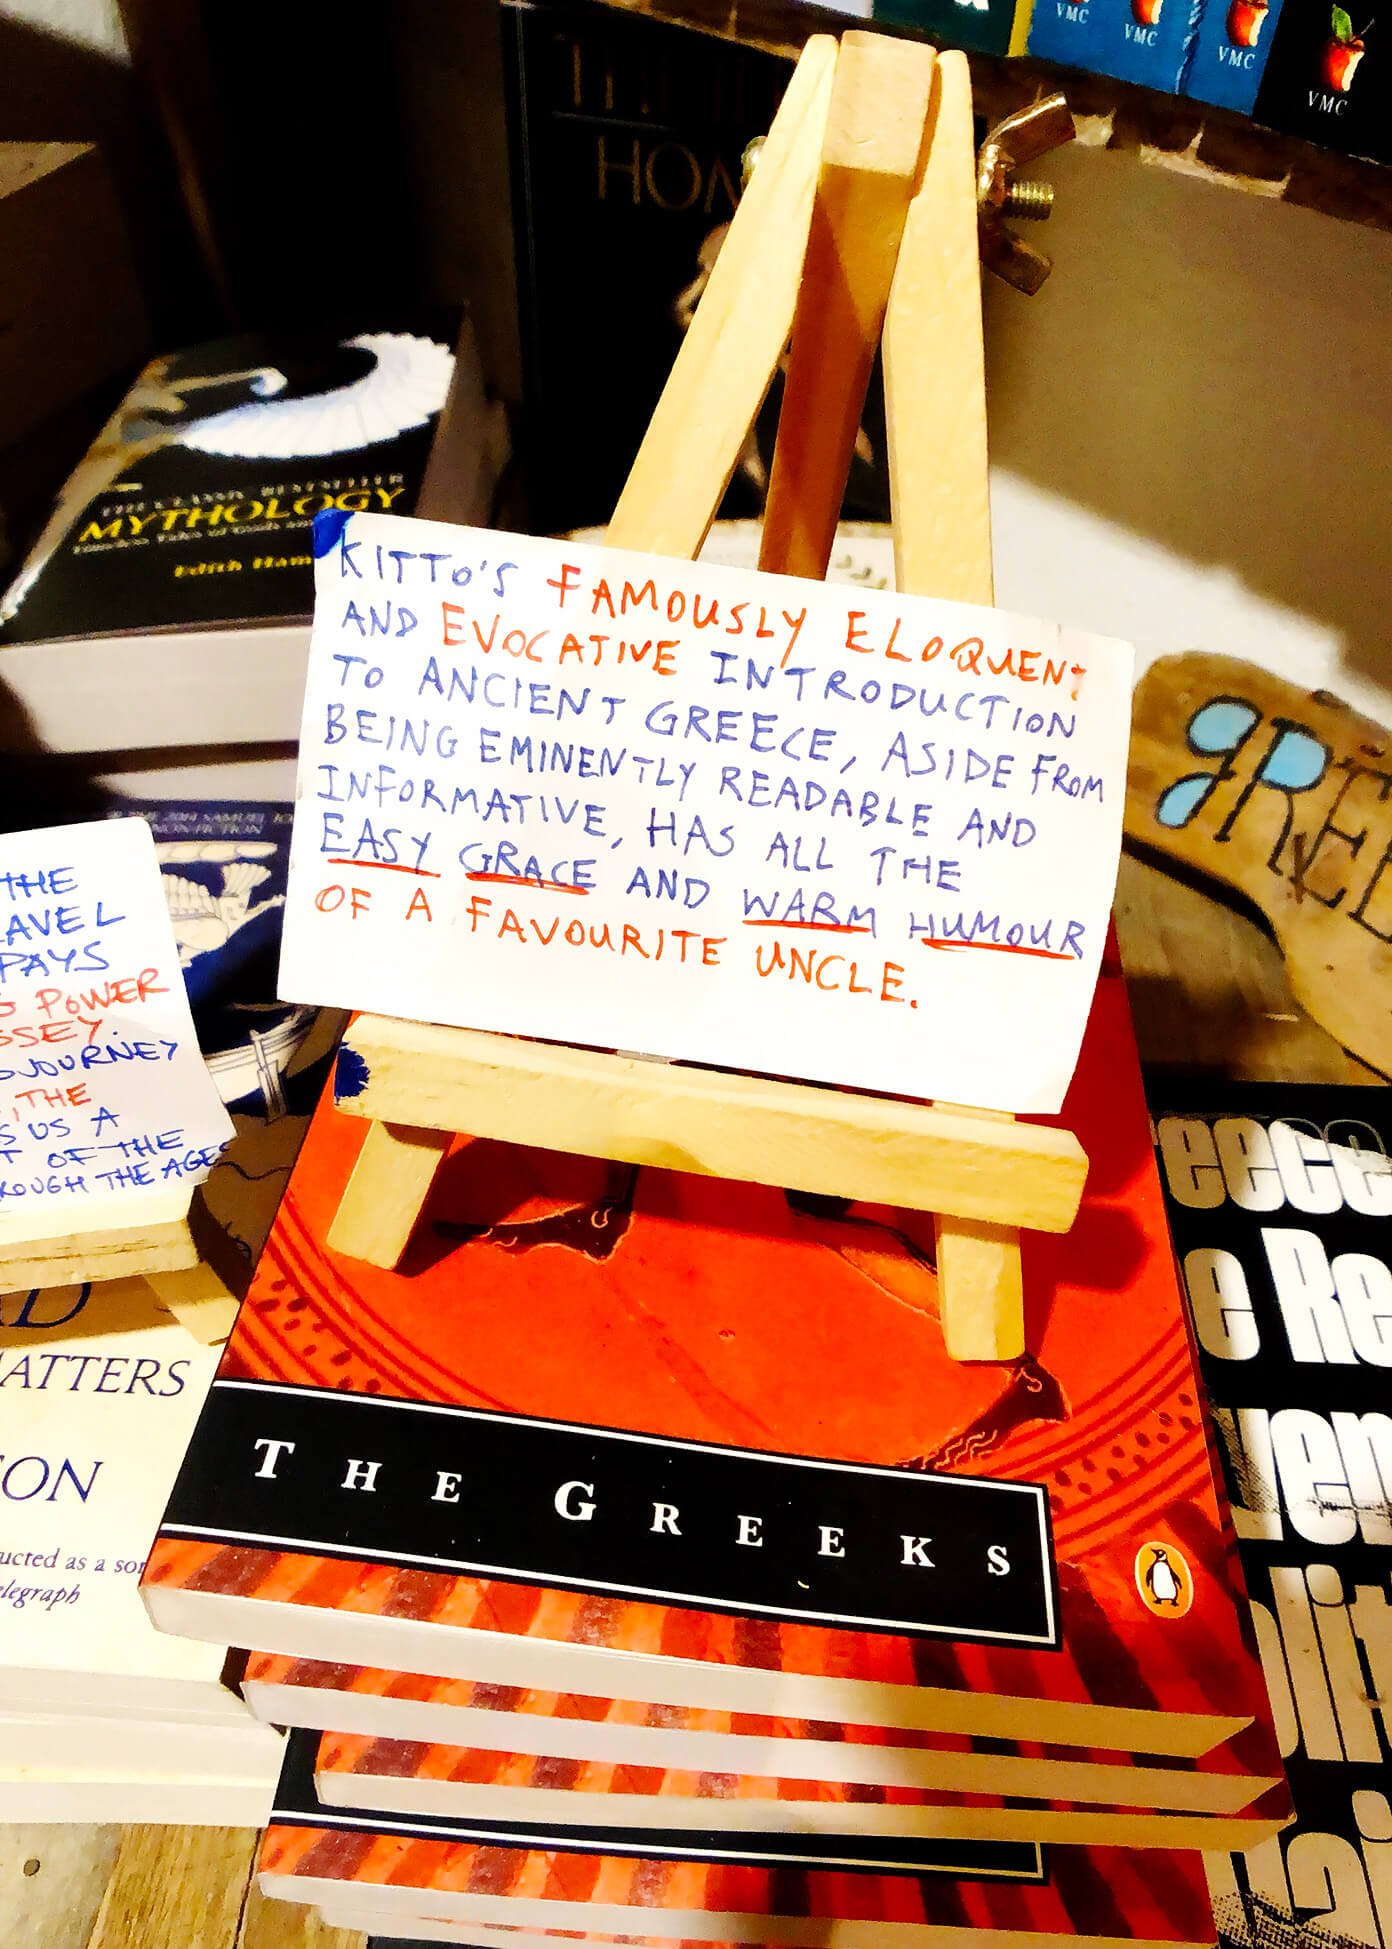 VMC
VMC
VMC
VMC
HOM
THE CLASSIC BESTSELLER
MYTHOLOGY
Timeless Tales of Gods and
Edith Ham
KITTO'S FAMOUSLY ELOQUENT
AND EVOCATIVE INTRODUCTION
TO ANCIENT GREECE, ASIDE FROM
BEING EMINENTLY READABLE AND
INFORMATIVE, HAS ALL THE
EASY GRACE AND WARM HUMOUR
OF A FAVOURITE UNCLE.
GREE
NON-FICTION
THE
AVEL
PAYS
G POWER
SSEY.
JOURNEY
, THE
S US A
T OF THE
ROUGH THE AGES
AD
MATTERS
SON
ucted as a son
elegraph
THE GREEKS
eece
e Re
ven
olit